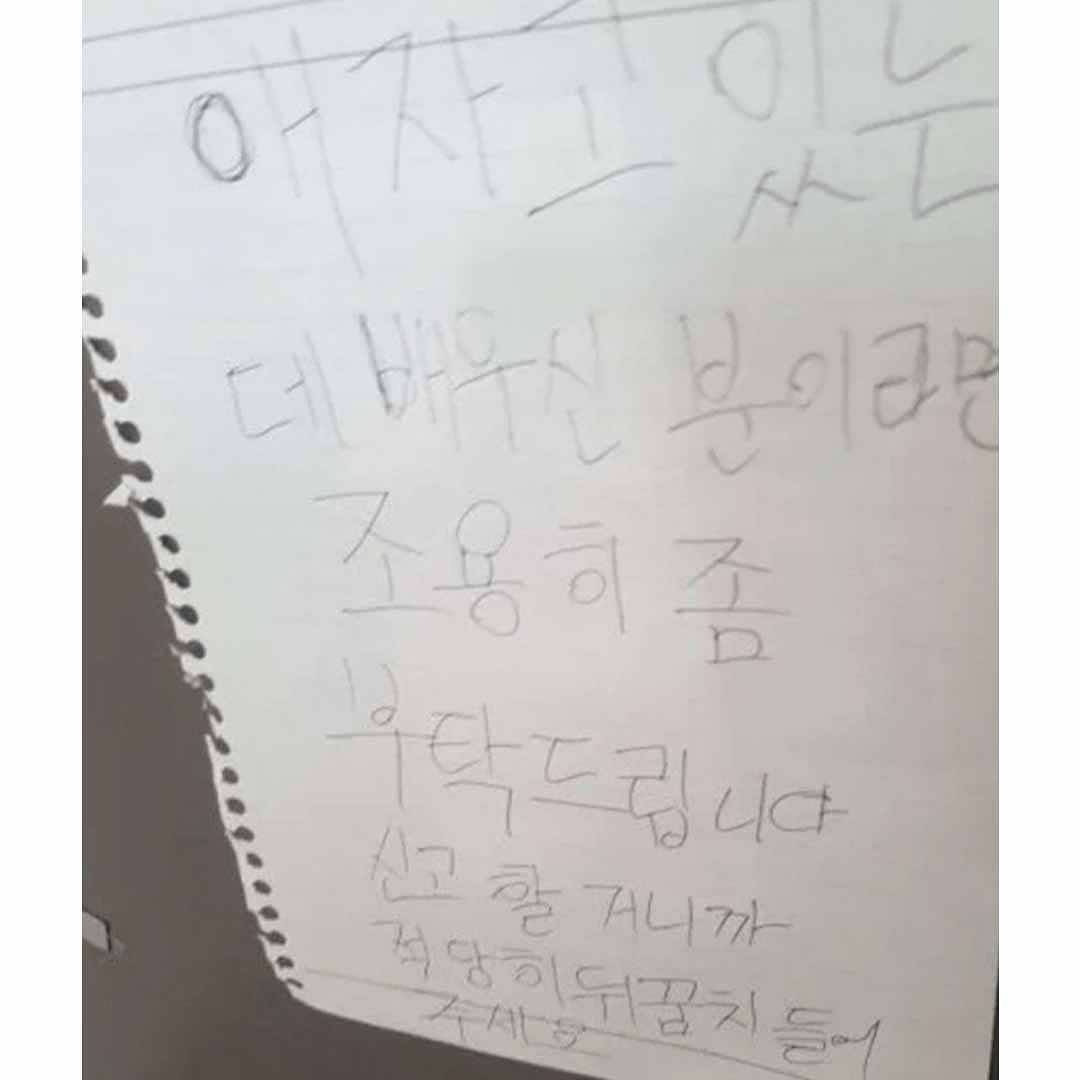 애 자고 있는
데 배우신 분이라면
조용히 좀
부탁드립니다
신고 할 거니까
적당히 뒤꿈치 들어
주세요